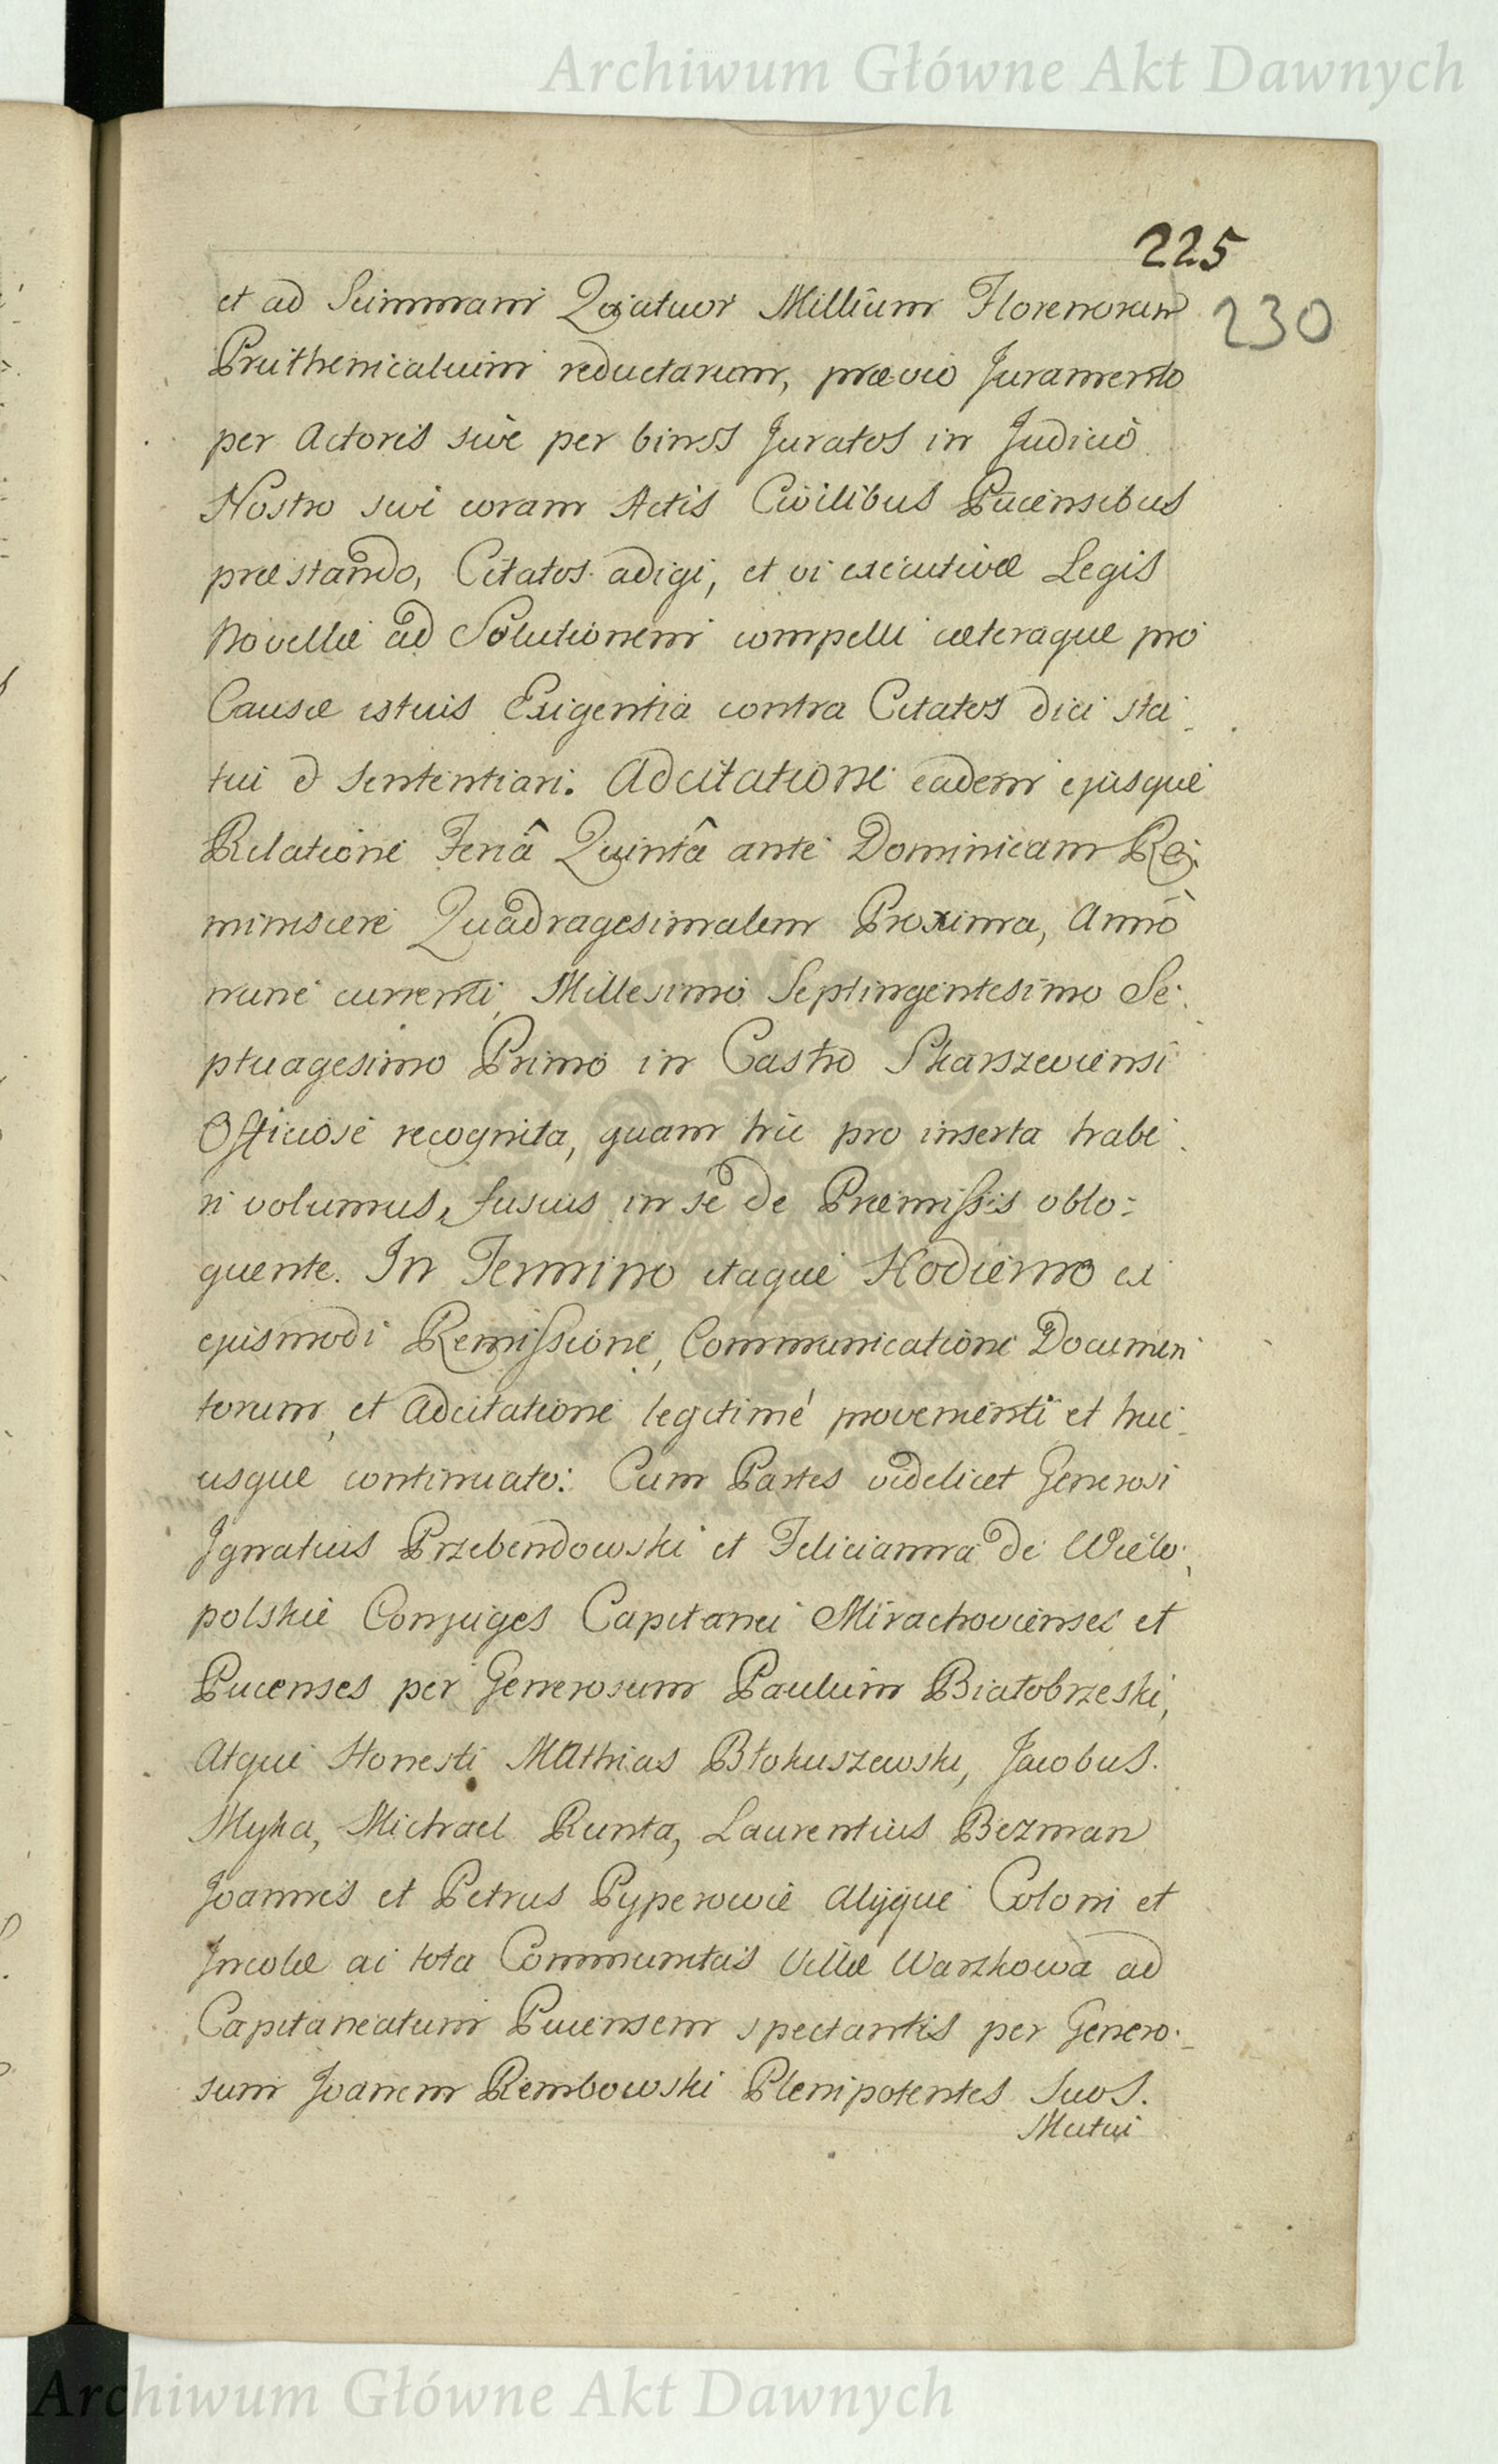 Archiwum Główne Akt Dawnych
225
230
et ad Summam Quatuor Millium Florenorum
Pruthenicalium reductarum, prævio Juramento
per Actores sive per binos Juratos in Judicio
Nostro sive coram Actis Civilibus Pucensibus
præstando, Citatos adigi, et vi executivæ Legis
Novellæ ad Solutionem compelli cæteraque pro
Causæ istius Exigentia contra Citatos dici sta-
tui & sententiari. Adcitatione eadem ejusque
Relatione Feriâ Quintâ ante Dominicam Re-
miniscere Quadragesimalem Proxima, Annô
nunc currenti, Millesimo Septingentesimo Se-
ptuagesimo Primo in Castro Skarszeviensi
Officiose recognita, quam hic pro inserta habe-
ri volumus, fusius in se de Præmissis oblo-
quente. In Termino itaque Hodierno ex
ejusmodi Remissione, Communicatione Documen
torum, et Adcitatione legitimé provenienti et huc-
usque continuato: Cum Partes videlicet Generosi
Ignatius Przebendowski et Felicianna de Wielo-
polskie Conjuges Capitanei Mirachovienses et
Pucenses per Generosum Paulum Białobrzeski,
Atque Honesti Mathias Błokuszewski, Jacobus
Myka, Michael Runta, Laurentius Bezman
Joannes et Petrus Pyperowie Alijque Coloni et
Incolæ ac tota Communitas Villæ Warzkowa ad
Capitaneatum Pucensem spectantis per Genero-
sum Joanem Rembowski Plenipotentes Suos.
Mutui
Archiwum Główne Akt Dawnych